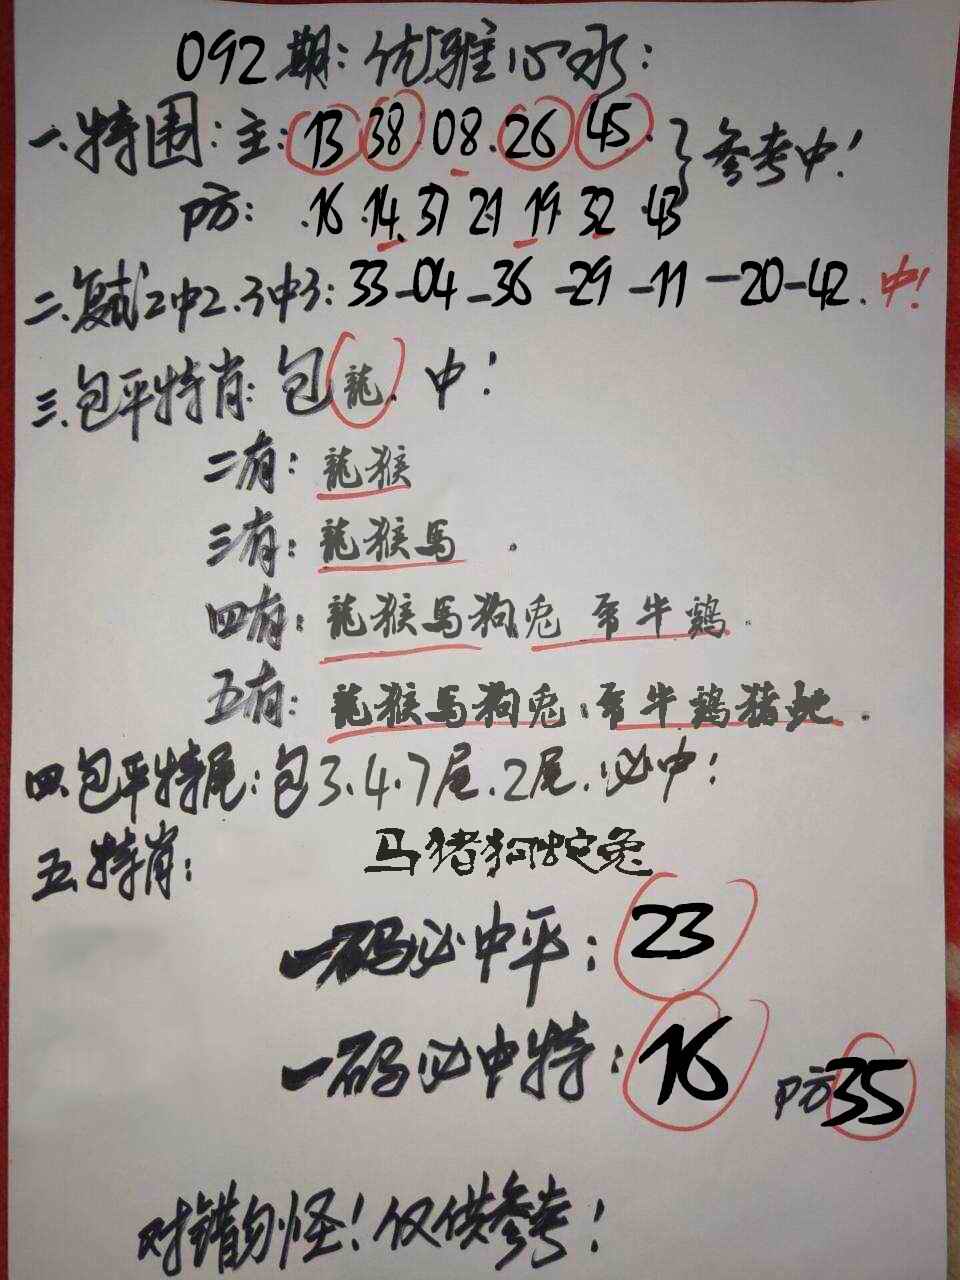 092期：优雅心水：
一.特围：主：13 38 08.26 45.}参考中！
防：.16.14.37 21.19.32.43
二.复式2中2.3中3：33-04-36-29-11-20-42.中！
三.包平特肖：包龍.中！
二有：龍猴
三有：龍猴馬.
四有：龍猴馬狗兎 牛鷄.
五有：龍猴馬狗兎 牛鷄猪蛇.
四.包平特尾：包3.4.7尾.2尾.必中！
五.特肖：马猪狗蛇兔
一码必中平：23
一码必中特：16 防35
对错勿怪！仅供参考！